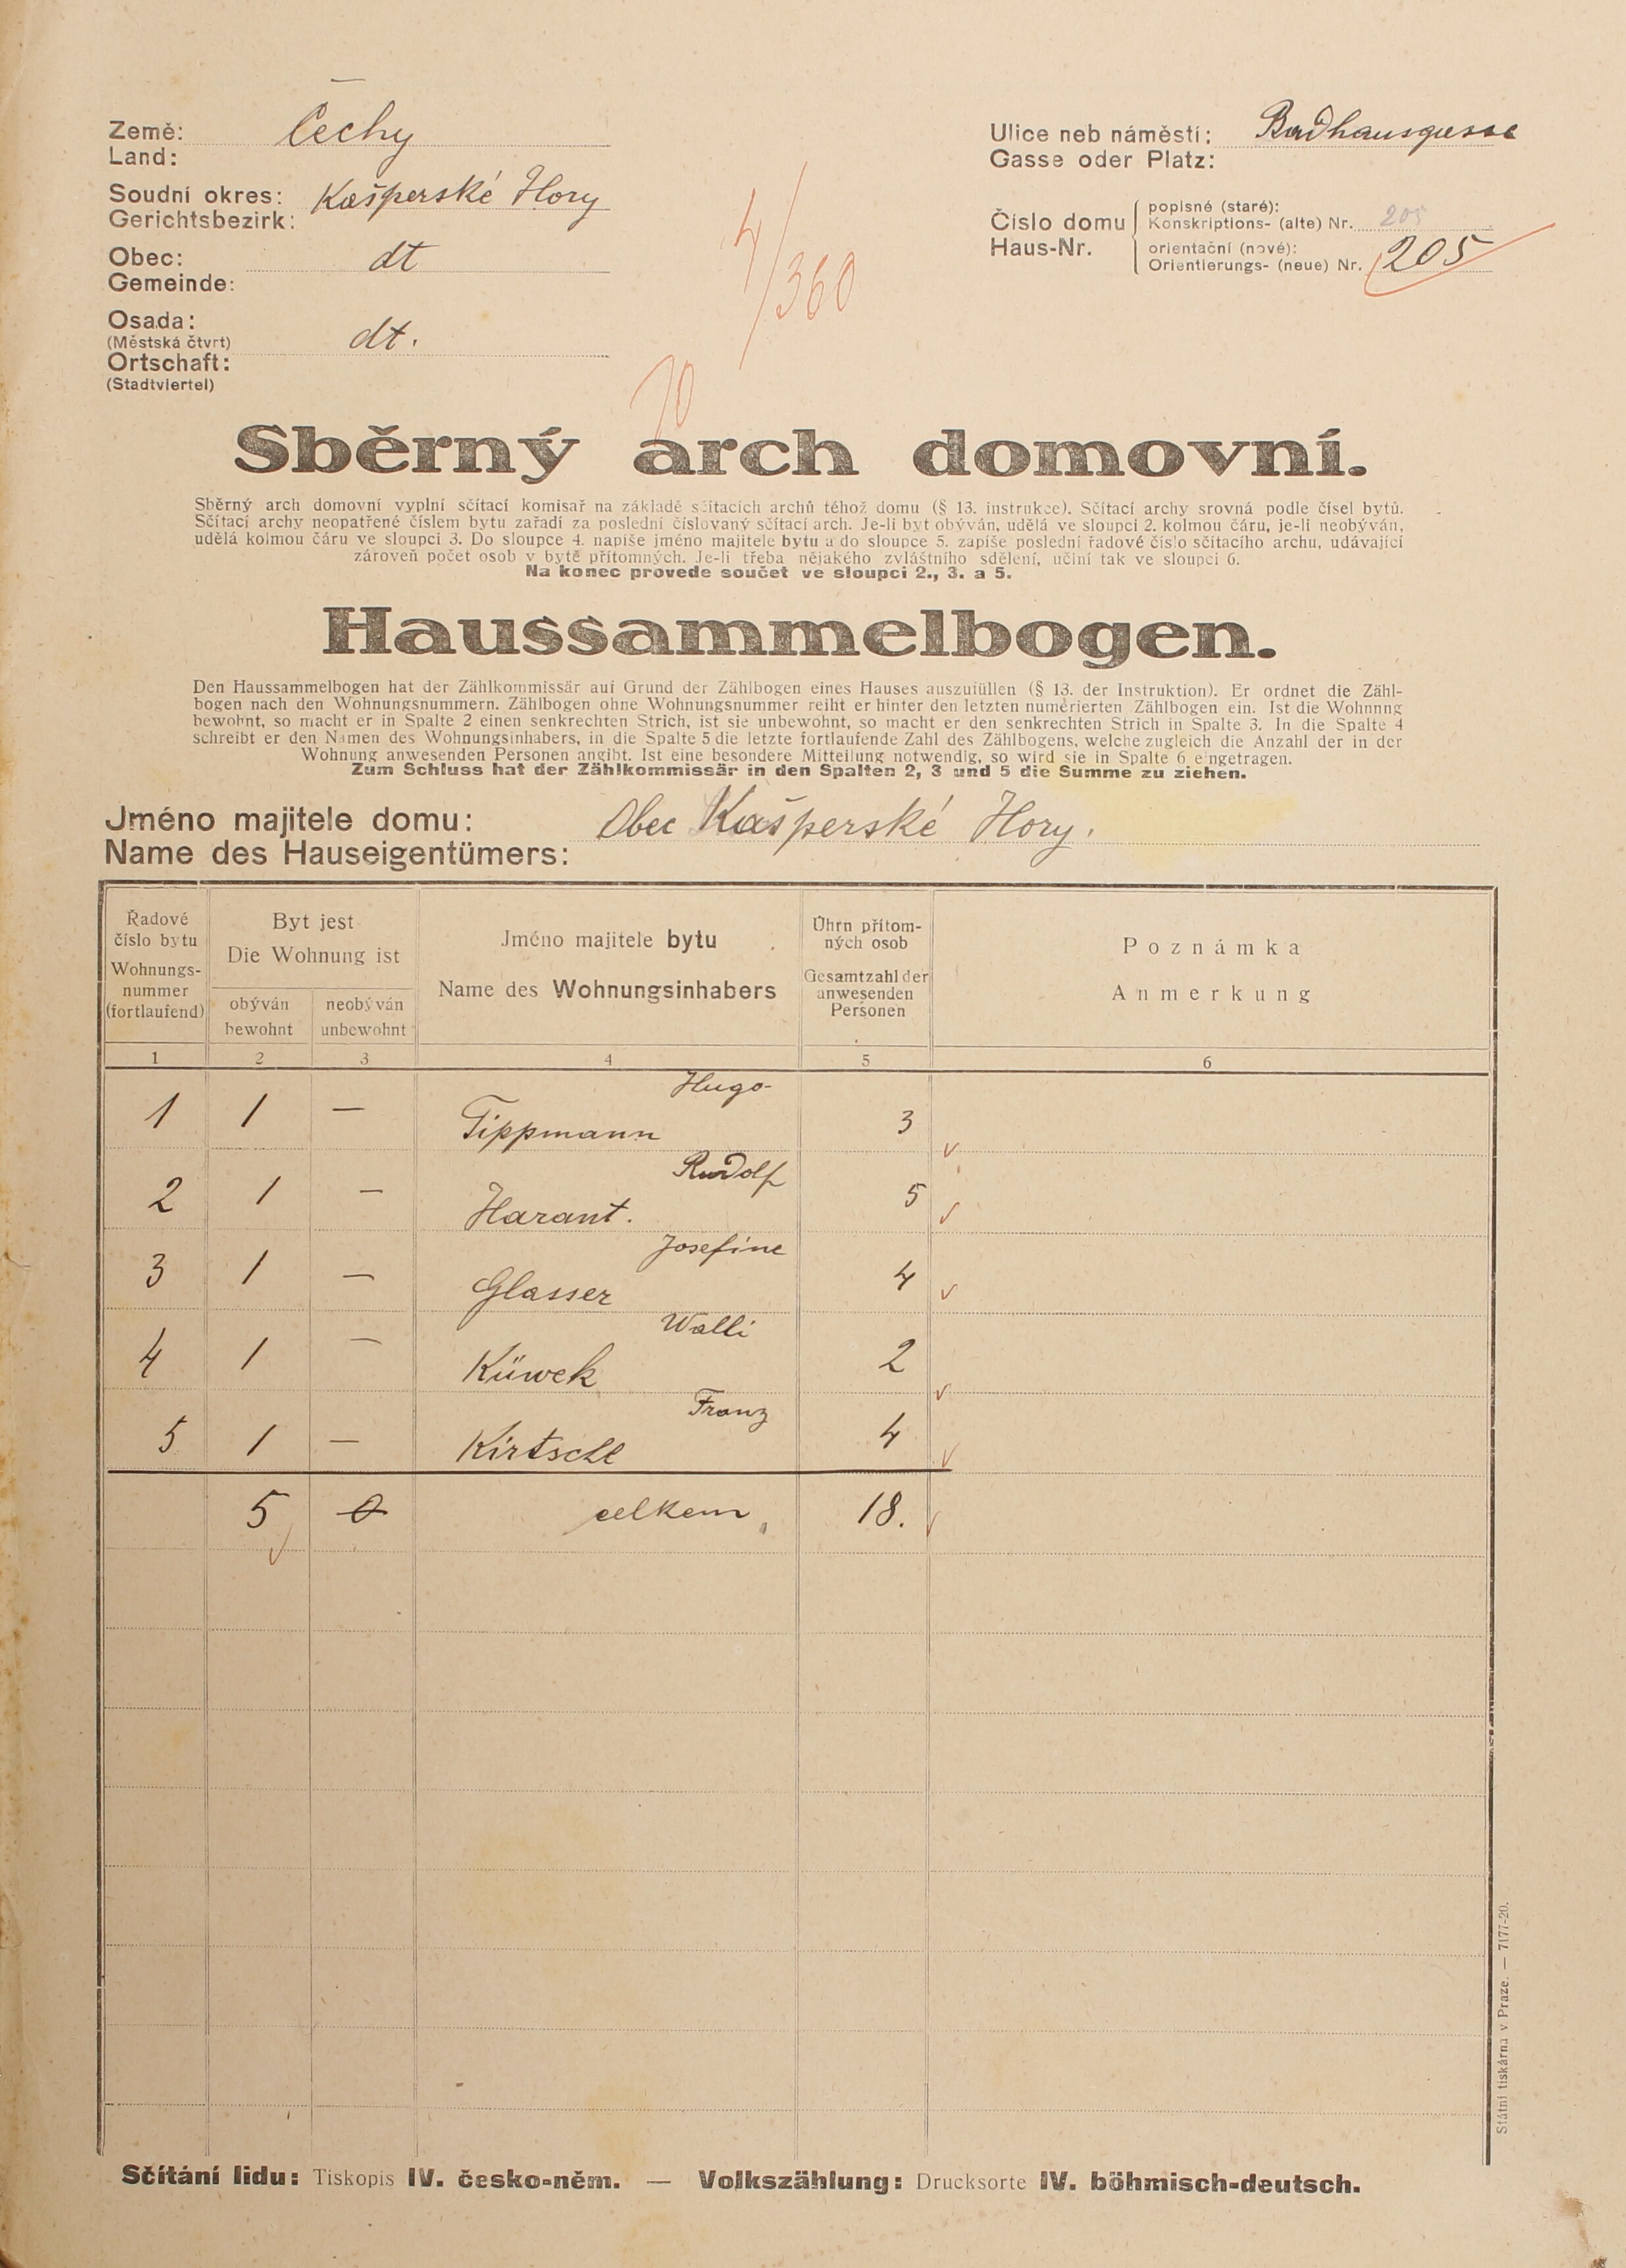 Země: Čechy
Land:
Soudní okres: Kašperské Hory
Gerichtsbezirk:
Obec: dt
Gemeinde:
Osada: dt.
(Městská čtvrt)
Ortschaft:
(Stadtviertel)
Ulice neb náměstí: Badhausgasse
Gasse oder Platz:
Číslo domu
Haus-Nr.
popisné (staré):
Konskriptions- (alte) Nr. 205
orientační (nové):
Orientierungs- (neue) Nr. 205
4/360
10
Sběrný arch domovní.
Sběrný arch domovní vyplní sčítací komisař na základě sčítacích archů téhož domu (§ 13. instrukce). Sčítací archy srovná podle čísel bytů.
Sčítací archy neopatřené číslem bytu zařadí za poslední číslovaný sčítací arch. Je-li byt obýván, udělá ve sloupci 2. kolmou čáru, je-li neobýván,
udělá kolmou čáru ve sloupci 3. Do sloupce 4. napíše jméno majitele bytu a do sloupce 5. zapíše poslední řadové číslo sčítacího archu, udávající
zároveň počet osob v bytě přítomných. Je-li třeba nějakého zvláštního sdělení, učiní tak ve sloupci 6.
Na konec provede součet ve sloupci 2., 3. a 5.
Haussammelbogen.
Den Haussammelbogen hat der Zählkommissär auf Grund der Zählbogen eines Hauses auszufüllen (§ 13. der Instruktion). Er ordnet die Zähl-
bogen nach den Wohnungsnummern. Zählbogen ohne Wohnungsnummer reiht er hinter den letzten numerierten Zählbogen ein. Ist die Wohnnng
bewohnt, so macht er in Spalte 2 einen senkrechten Strich, ist sie unbewohnt, so macht er den senkrechten Strich in Spalte 3. In die Spalte 4
schreibt er den Namen des Wohnungsinhabers, in die Spalte 5 die letzte fortlaufende Zahl des Zählbogens, welche zugleich die Anzahl der in der
Wohnung anwesenden Personen angibt. Ist eine besondere Mitteilung notwendig, so wird sie in Spalte 6 eingetragen.
Zum Schluss hat der Zählkommissär in den Spalten 2, 3 und 5 die Summe zu ziehen.
Jméno majitele domu: Obec Kašperské Hory.
Name des Hauseigentümers:
Řadové
číslo bytu
Wohnungs-
nummer
(fortlaufend)
Byt jest
Die Wohnung ist
obýván
bewohnt
neobýván
unbewohnt
Jméno majitele bytu
Name des Wohnungsinhabers
Úhrn přítom-
ných osob
Gesamtzahl der
anwesenden
Personen
Poznámka
Anmerkung
1 2 3 4 5 6
Hugo
1 1 — Tippmann 3
Rudolf
2 1 — Harant. 5
Josefine
3 1 — Glasser 4
Walli
4 1 — Küwek 2
Franz
5 1 — Kirtschl 4
5 0 celkem 18.
Státní tiskárna v Praze. — 7177-20.
Sčítání lidu: Tiskopis IV. česko-něm. — Volkszählung: Drucksorte IV. böhmisch-deutsch.